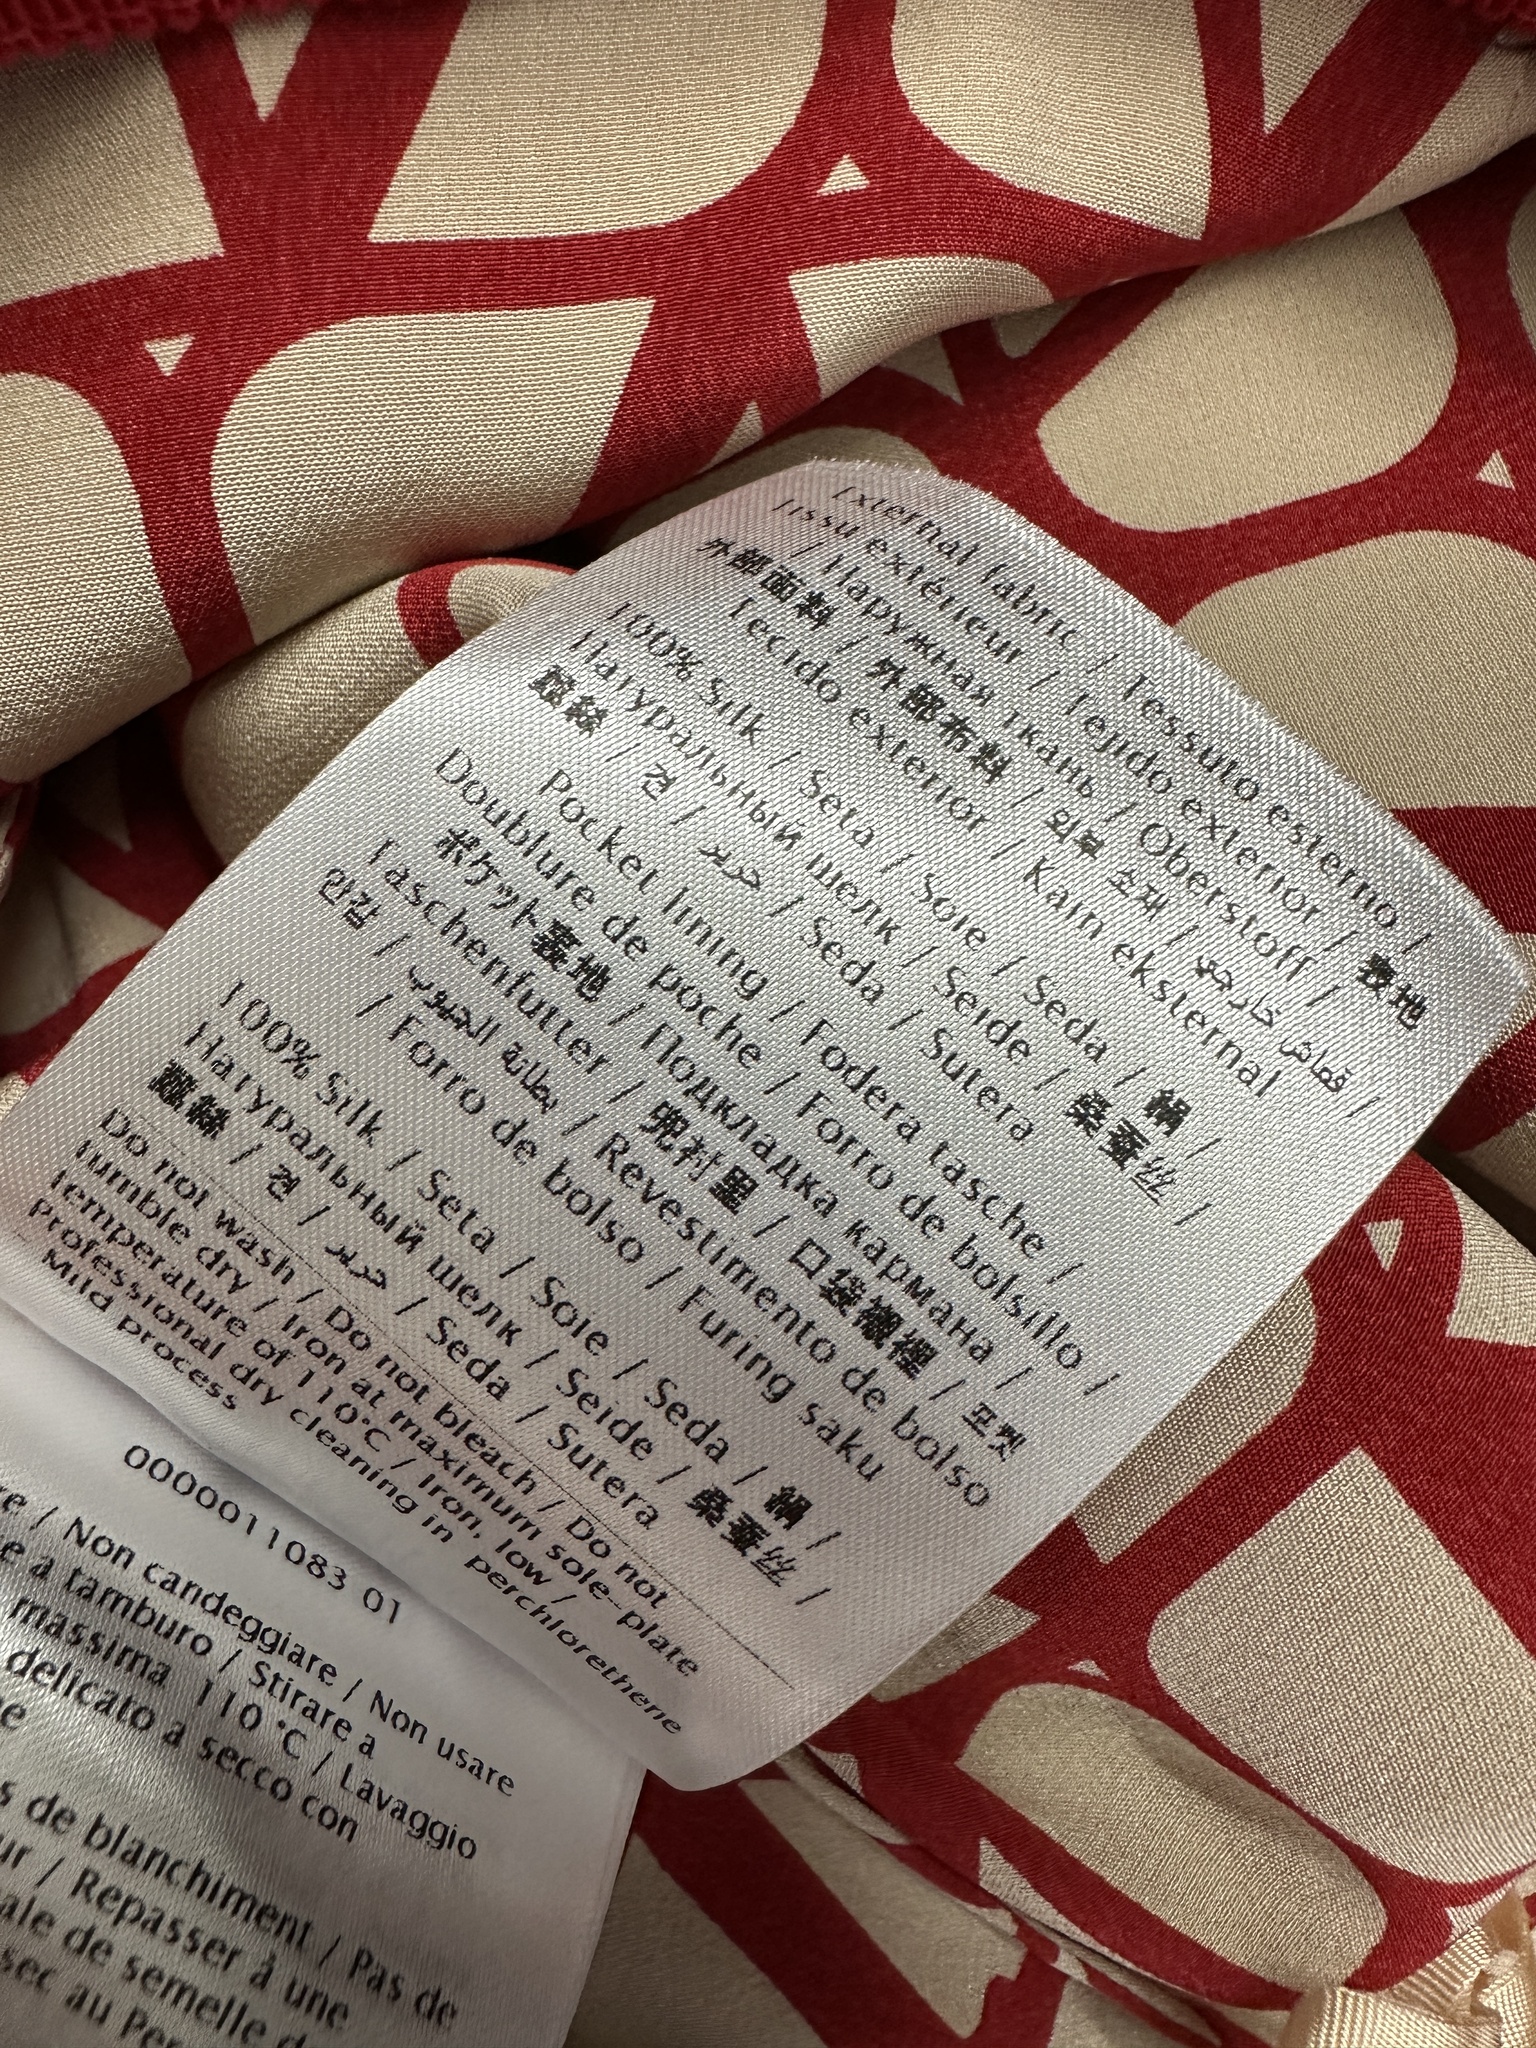 External fabric / Tessuto esterno /
Tissu extérieur / Tejido exterior / 表地
/ Наружная ткань / Oberstoff /
外部面料 / 外部布料 / 외부 소재 / قماش خارجي /
Tecido exterior / Kain eksternal
100% Silk / Seta / Soie / Seda / 絹 /
Натуральный шелк / Seide / 桑蚕丝 /
蠶絲 / 견 / حرير / Seda / Sutera
Pocket lining / Fodera tasche /
Doublure de poche / Forro de bolsillo /
ポケット裏地 / Подкладка кармана /
Taschenfutter / 兜衬里 / 口袋襯裡 / 포켓
안감 / بطانة الجيوب / Revestimento de bolso
/ Forro de bolso / Furing saku
100% Silk / Seta / Soie / Seda / 絹 /
Натуральный шелк / Seide / 桑蚕丝 /
蠶絲 / 견 / حرير / Seda / Sutera
Do not wash / Do not bleach / Do not
tumble dry / Iron at maximum sole-plate
temperature of 110°C / Iron, low /
Professional dry cleaning in perchlorethene
Mild process
0000011083 01
/ Non candeggiare / Non usare
a tamburo / Stirare a
massima 110 °C / Lavaggio
delicato a secco con
de blanchiment / Pas de
/ Repasser à une
de semelle
sec au